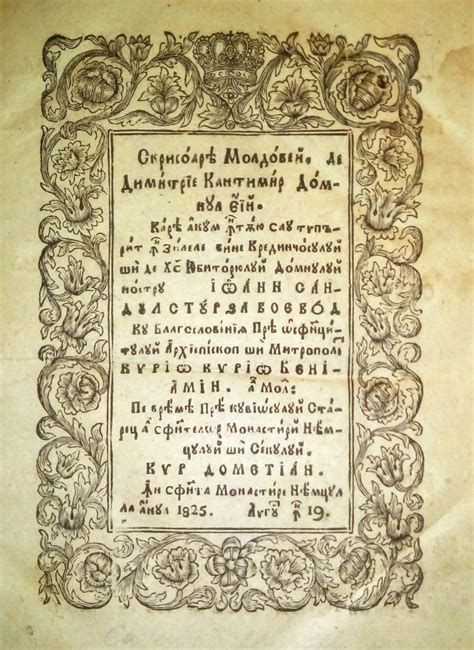 Скрисоарѣ Молдовей. де
Димитрїе Кантимир До́м-
нул Єй.
Каре акум ꙟтѫю сау типъ-
рит ꙟ Зилеле бине Крединчосулуй
ши де Хс҃ Юбиторюлуй Домнулуй
ностру ІѠАНН САН-
ДУЛ СТУРЗА ВОЄВОД
Ку Благословенїѧ Прѣ Ѡсфинци-
тулуй Архїепископ ши Митрополит
КУРІѠ КУРІѠ ВЕНІ-
АМІН. а Мол:
Пе врѣмѣ Прѣ кувїѡсулуй Ста́-
рец а Сфинтелѡр Монастирй Нѣм-
цулуй ши Секулуй.
КУР ДОМЕТІАН.
Ꙟ Сфѫнта Монастире Нѣмцул
ла анул 1825. Авгу ꙟ 19.